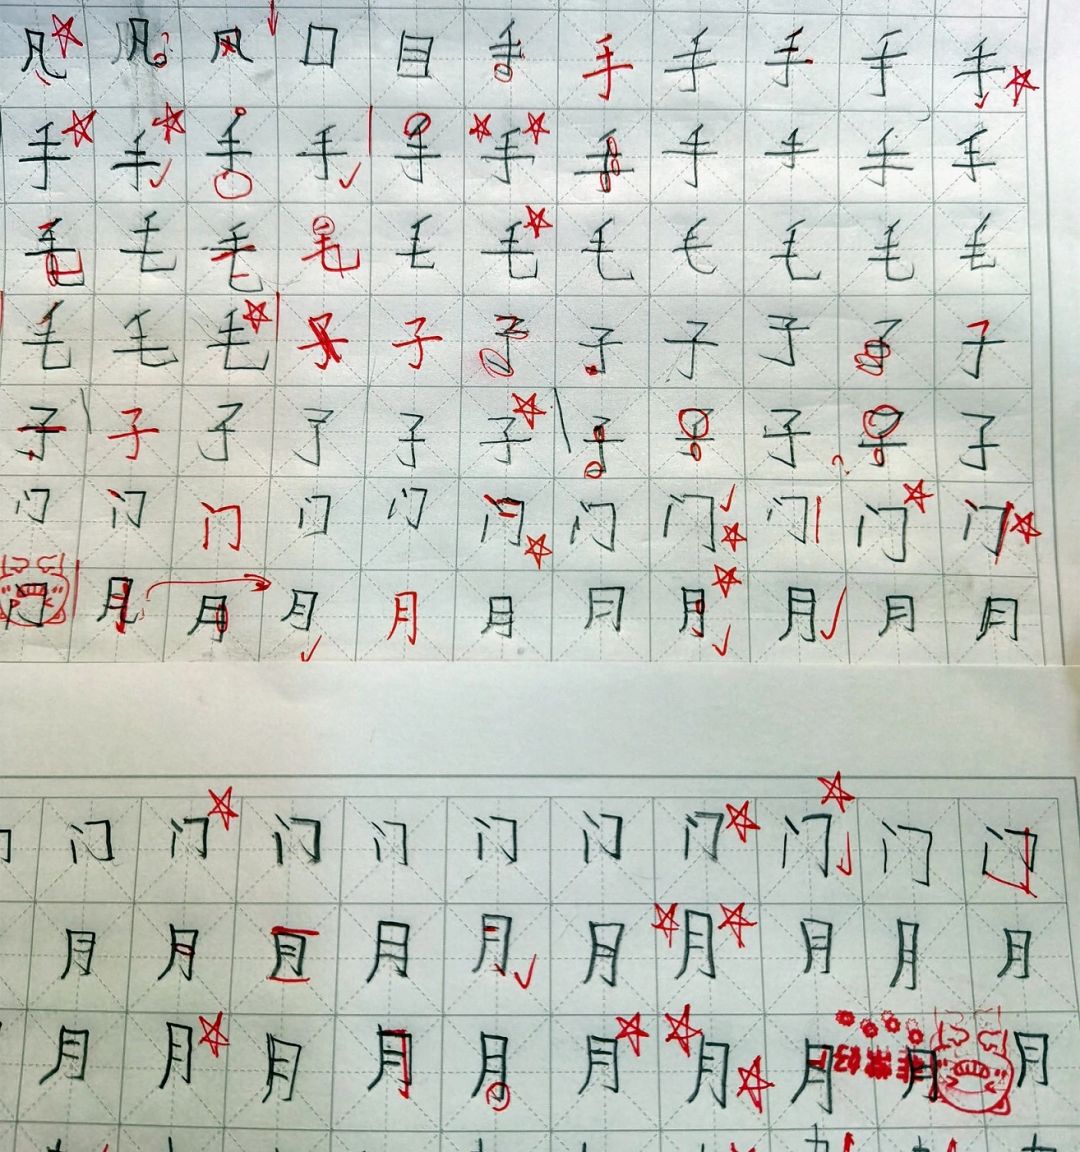 凡 凡 风 口 目 手 手 手 手 手 手
手 手 手 手 手 手 手 手 手 手 手
毛 毛 毛 毛 毛 毛 毛 毛 毛 毛 毛
毛 毛 毛 子 子 子 子 子 子 子 子
子 子 子 子 子 子 子 子 子 子 子
门 门 门 门 门 门 门 门 门 门 门
门 月 月 月 月 月 月 月 月 月 月
门 门 门 门 门 门 门 门 门 门 门
月 月 月 月 月 月 月 月 月 月
月 月 月 月 月 月 月 月 月 月